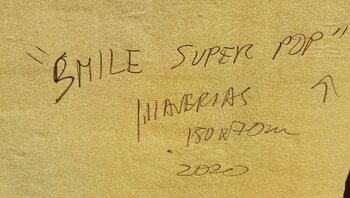 "SMILE SUPER POP"
150x70cm
2020